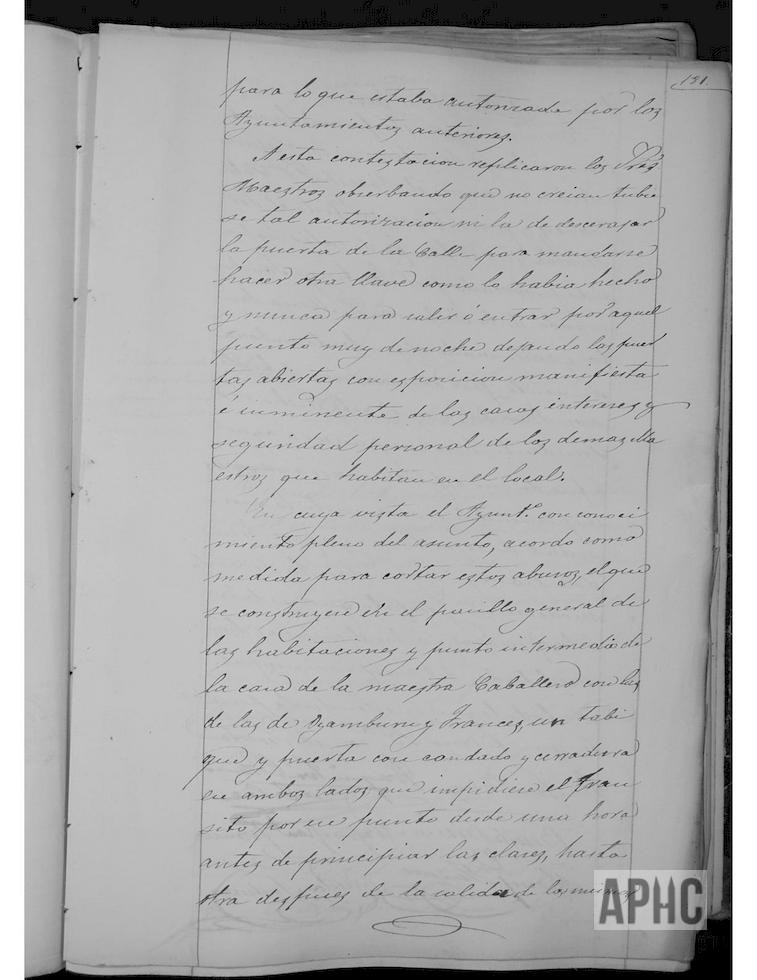 151.
para lo que estaba autorizada por los
Ayuntamientos anteriores.
A esta contestacion replicaron los Sres
Maestros obserbando que no creian tubie
se tal autorizacion ni la de descerajar
la puerta de la Calle para mandarse
hacer otra llave como lo habia hecho
y nunca para salir ó entrar por aquel
punto muy de noche dejando las puer
tas abiertas con esposicion manifiesta
é inminente de las casas, intereses y
seguridad personal de los demas Ma
estros que habitan en el local.
En cuya vista el Ayunt.º con conoci
miento pleno del asunto, acordo como
medida para cortar estos abusos, el que
se construyera en el pasillo general de
las habitaciones y punto intermedio de
la casa de la maestra Caballero con las
de las de Oyamburu y Frances, un tabi
que y puerta con candado y cerradura
en ambos lados que impidiese el tran
sito por ese punto desde una hora
antes de principiar las clases, hasta
otra despues de la salida de los mismos
APHC